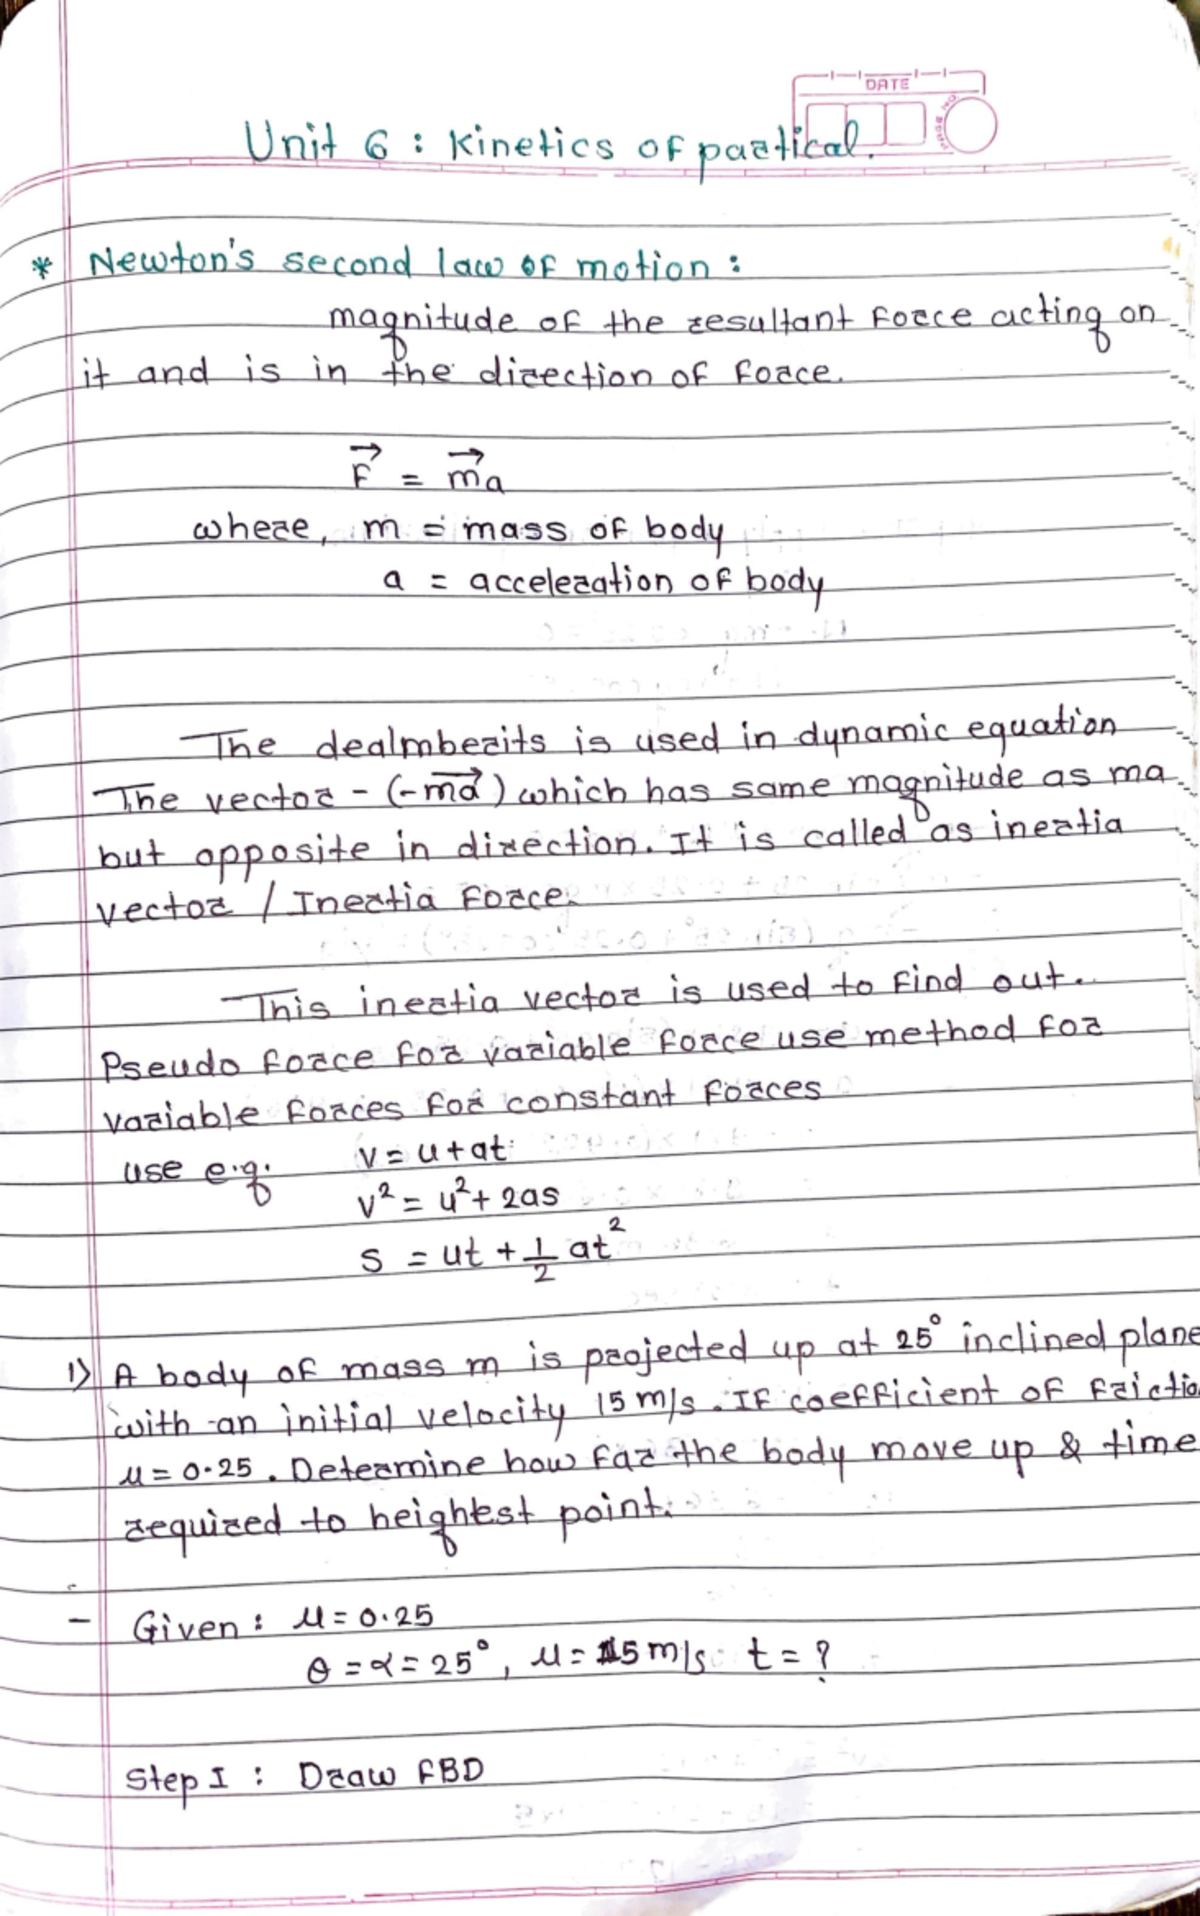 DATE
Unit 6 : Kinetics of partical.
* Newton's second law of motion :
magnitude of the resultant force acting on
it and is in the direction of force.
F⃗ = m⃗a
where, m = mass of body
a = acceleration of body
The dealmberits is used in dynamic equation
The vector - (-ma⃗) which has same magnitude as ma
but opposite in direction. It is called as inertia
vector / Inertia force.
This inertia vector is used to find out..
Pseudo force for variable force use method for
variable forces for constant forces
use e.g. v = u + at
v² = u² + 2as
s = ut + 1/2 at²
1) A body of mass m is projected up at 25° inclined plane
with an initial velocity 15 m/s. If coefficient of frictio
μ = 0.25. Determine how far the body move up & time
required to heighest point.
- Given : μ = 0.25
θ = α = 25°, μ = 15 m/s t = ?
Step I : Draw FBD